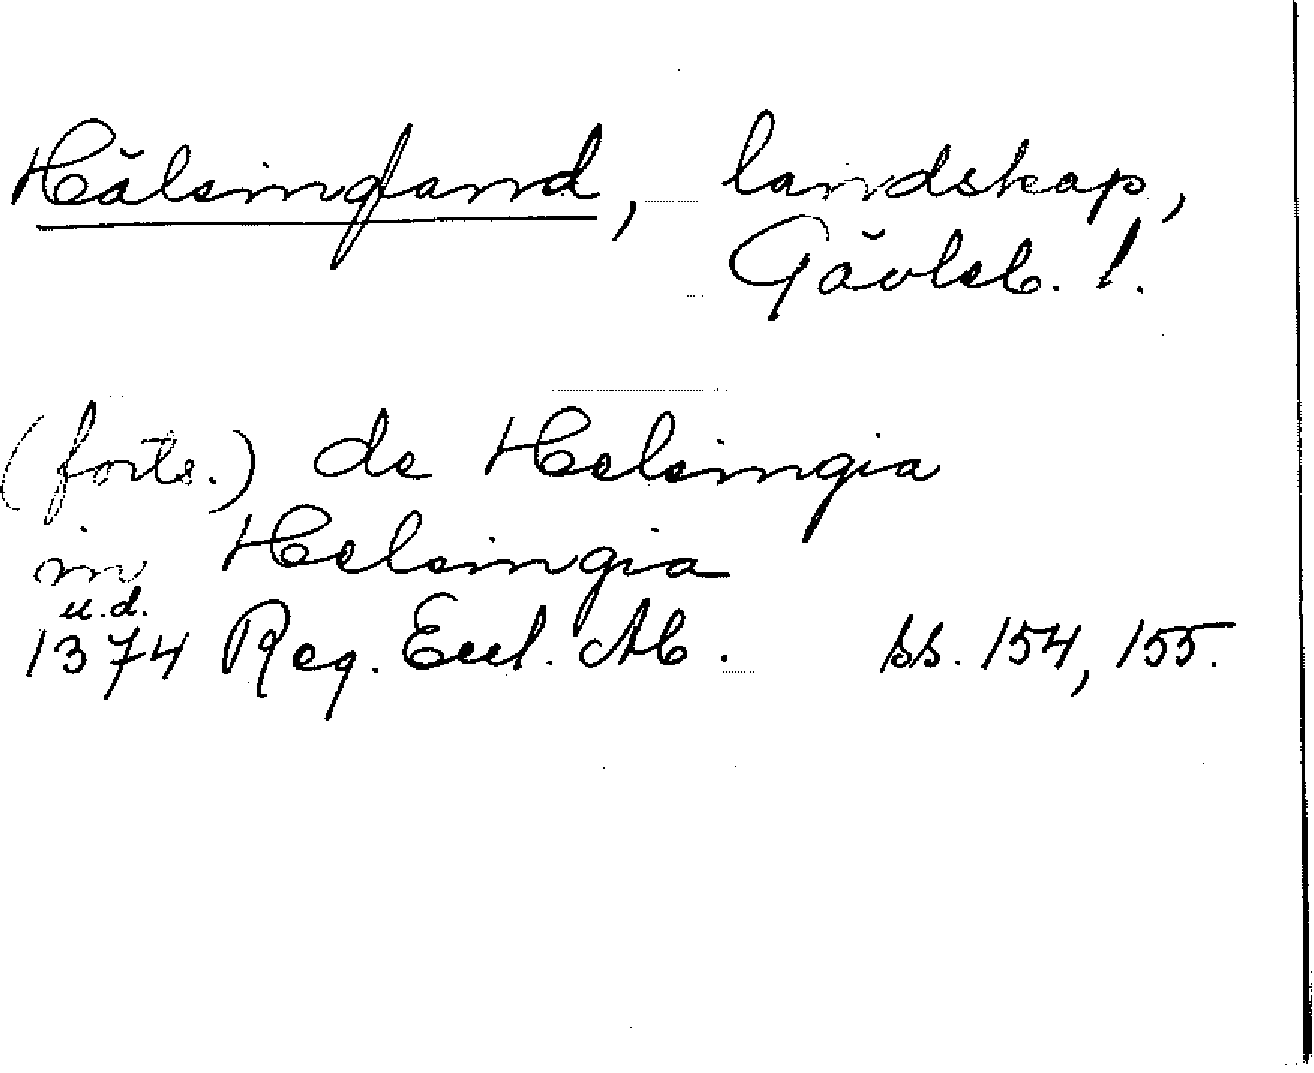 Hälsingland, landskap,
Gävleb. l.
(forts.) de Helsingia
in Helsingia
u.d.
1374 Reg. Eccl. Ab. ss. 154, 155.